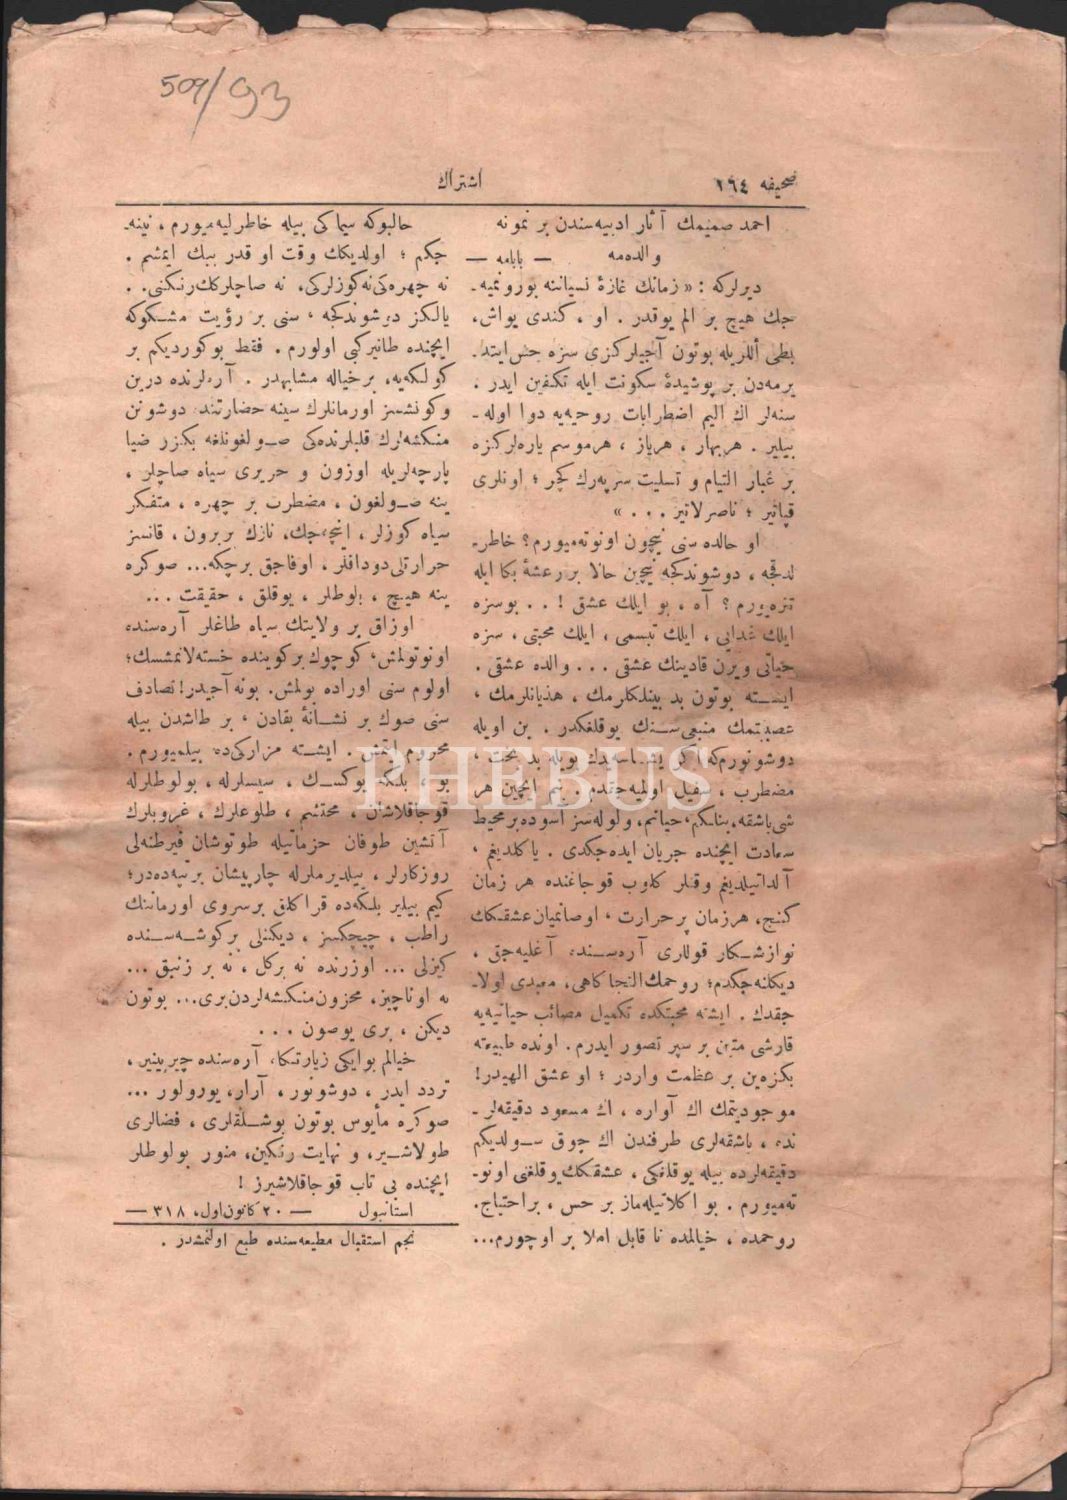 509/93
صحيفه ٢٦٤
اشتراك
احمد صميمك آثار ادبيه‌سندن بر نمونه
والده‌مه
— بابامه —
ديرلركه : « زمانك غازهٔ نسياننه بورونميه‌-
جك هيچ بر الم يوقدر . او ، كندى يواش،
بطى أللريله بوتون آجيلركزى سزه حس ايتد-
يرمه‌دن بر پوشيدهٔ سكونت ايله تكفين ايدر .
سنه‌لر اك اليم اضطرابات روحيه‌يه دوا اوله‌-
بيلير . هربهار ، هرياز ، هرموسم ياره‌لركزه
بر غبار التيام و تسليت سرپه‌رك كچر ؛ اونلرى
قپاتير ؛ ناصرلاتير . . . »
او حالده سنى نيچون اونوته‌ميورم؟ خاطر-
لدقجه ، دوشوندكجه نيچين حالا بر رعشهٔ بكا ايله
تتره‌يورم ؟ آه ، بو ايلك عشق ! . . بوسزه
ايلك غدايى ، ايلك تبسمى ، ايلك محبتى ، سزه
حياتى ويرن قادينك عشقى . . . والده عشقى .
ايشته بوتون بد بينلكلرمك ، هذيانلرمك ،
عصبيتمك منبعى سنك يوقلغكدر . بن اويله
دوشونورم‌كه اكر يشاسه‌يدك بويله بد بخت ،
مضطرب ، سفيل اولميه‌جقدم . بنم ايچين هر
شى باشقه، بنا‌لكم، حياتم، ولوله‌سز آسوده بر محيط
سعادت ايچنده جريان ايده‌جكدى . ياكلديغم ،
آلداتيلديغم وقتلر كلوب قوجاغنده هر زمان
كنج، هرزمان پر حرارت ، اوصانميان عشقكك
نوازشكار قوللرى آره‌سنده آغليه‌جق ،
ديكلنه‌جكدم؛ روحمك التجا كاهى، معبدى اولا-
جقدك . ايشته محبتكده تكميل مصائب حياتيه‌يه
قارشى متين بر سپر تصور ايدرم. اونده طبيعته
بكزه‌ين بر عظمت واردر ؛ او عشق الهيدر!
موجوديتمك اك آواره ، اك مسعود دقيقه‌لر-
نده ، باشقه‌لرى طرفندن اك چوق سولديكم
دقيقه‌لرده بيله يوقلغكى ، عشقكك يوقلغنى اونو-
ته‌ميورم . بو آكلاتيله‌ماز بر حس ، بر احتياج.
روحمده ، خيالمده نا قابل املا بر اوچورم...
حالبوكه سيماكى بيله خاطرليه‌ميورم ، نينه‌-
جكم ؛ اولديكك وقت او قدر ببك ايمشم .
نه چهره‌كى نه كوزلركى، نه صاچلركك رنكنى. .
يالكز دوشوندكجه ، سنى بر رؤيت مشكوكه
ايچنده طانير كبى اولورم . فقط بو كورديكم بر
كولكه‌يه، بر خياله مشابهدر . آره‌لرنده درين
و كونشسز اورمانلرك سينه حضارتند دوشونن
منكشه‌لرك قلبلرنده‌كى صولغونلغه بكزر ضيا
پارچه‌لريله اوزون و حريرى سياه صاچلر ،
ينه صولغون ، مضطرب بر چهره ، متفكر
سياه كوزلر ، اينجه‌جك، نازك بر برون ، قانسز
حرارتلى دوداقلر ، اوفاجق بر چكه... صوكره
ينه هيچ ، بولوطلر ، يوقلق ، حقيقت . . .
اوزاق بر ولايتك سياه طاغلر آره‌سنده
اونوتولمش، كوچوك بر كوينده خسته‌لانمشسك؛
اولوم سنى اوراده بولمش. بو نه آجيدر! تصادف
سنى صوك بر نشانهٔ بقادن ، بر طاشدن بيله
محروم ايتمش . ايشته مزاركى ده بيلميورم.
بو ، بلكه يوكسك ، سيسلرله ، بولوطلرله
قوجاقلاشان ، محتشم ، طلوعلرك ، غروبلرك
آتشين طوفان حزماتيله طوتوشان فيرطنه‌لى
روزكارلر ، ييلديرملرله چارپيشان بر تپه‌ده‌در؛
كيم بيلير بلكه‌ده قراكلق بر سروى اورماننك
راطب ، چيچكسز ، ديكنلى بر كوشه‌سنده
كيزلى ... اوزرنده نه بر كل ، نه بر زنبق ...
نه او ناچيز، محزون منكشه‌لردن برى... بوتون
ديكن ، برى يوصون . . .
خيالم بو ايكى زيارتكاه آره‌سنده چيرپينير ،
تردد ايدر ، دوشونور ، آرار، يورولور ...
صوكره مأيوس بوتون بوشلقلرى ، فضالرى
طولاشير، و نهايت رنكين، منور بولوطلر
ايچنده بى تاب قوجاقلاشيرز !
استانبول — ٢٠ كانون اول، ٣١٨ —
نجم استقبال مطبعه‌سنده طبع اولنمشدر .
PHEBUS